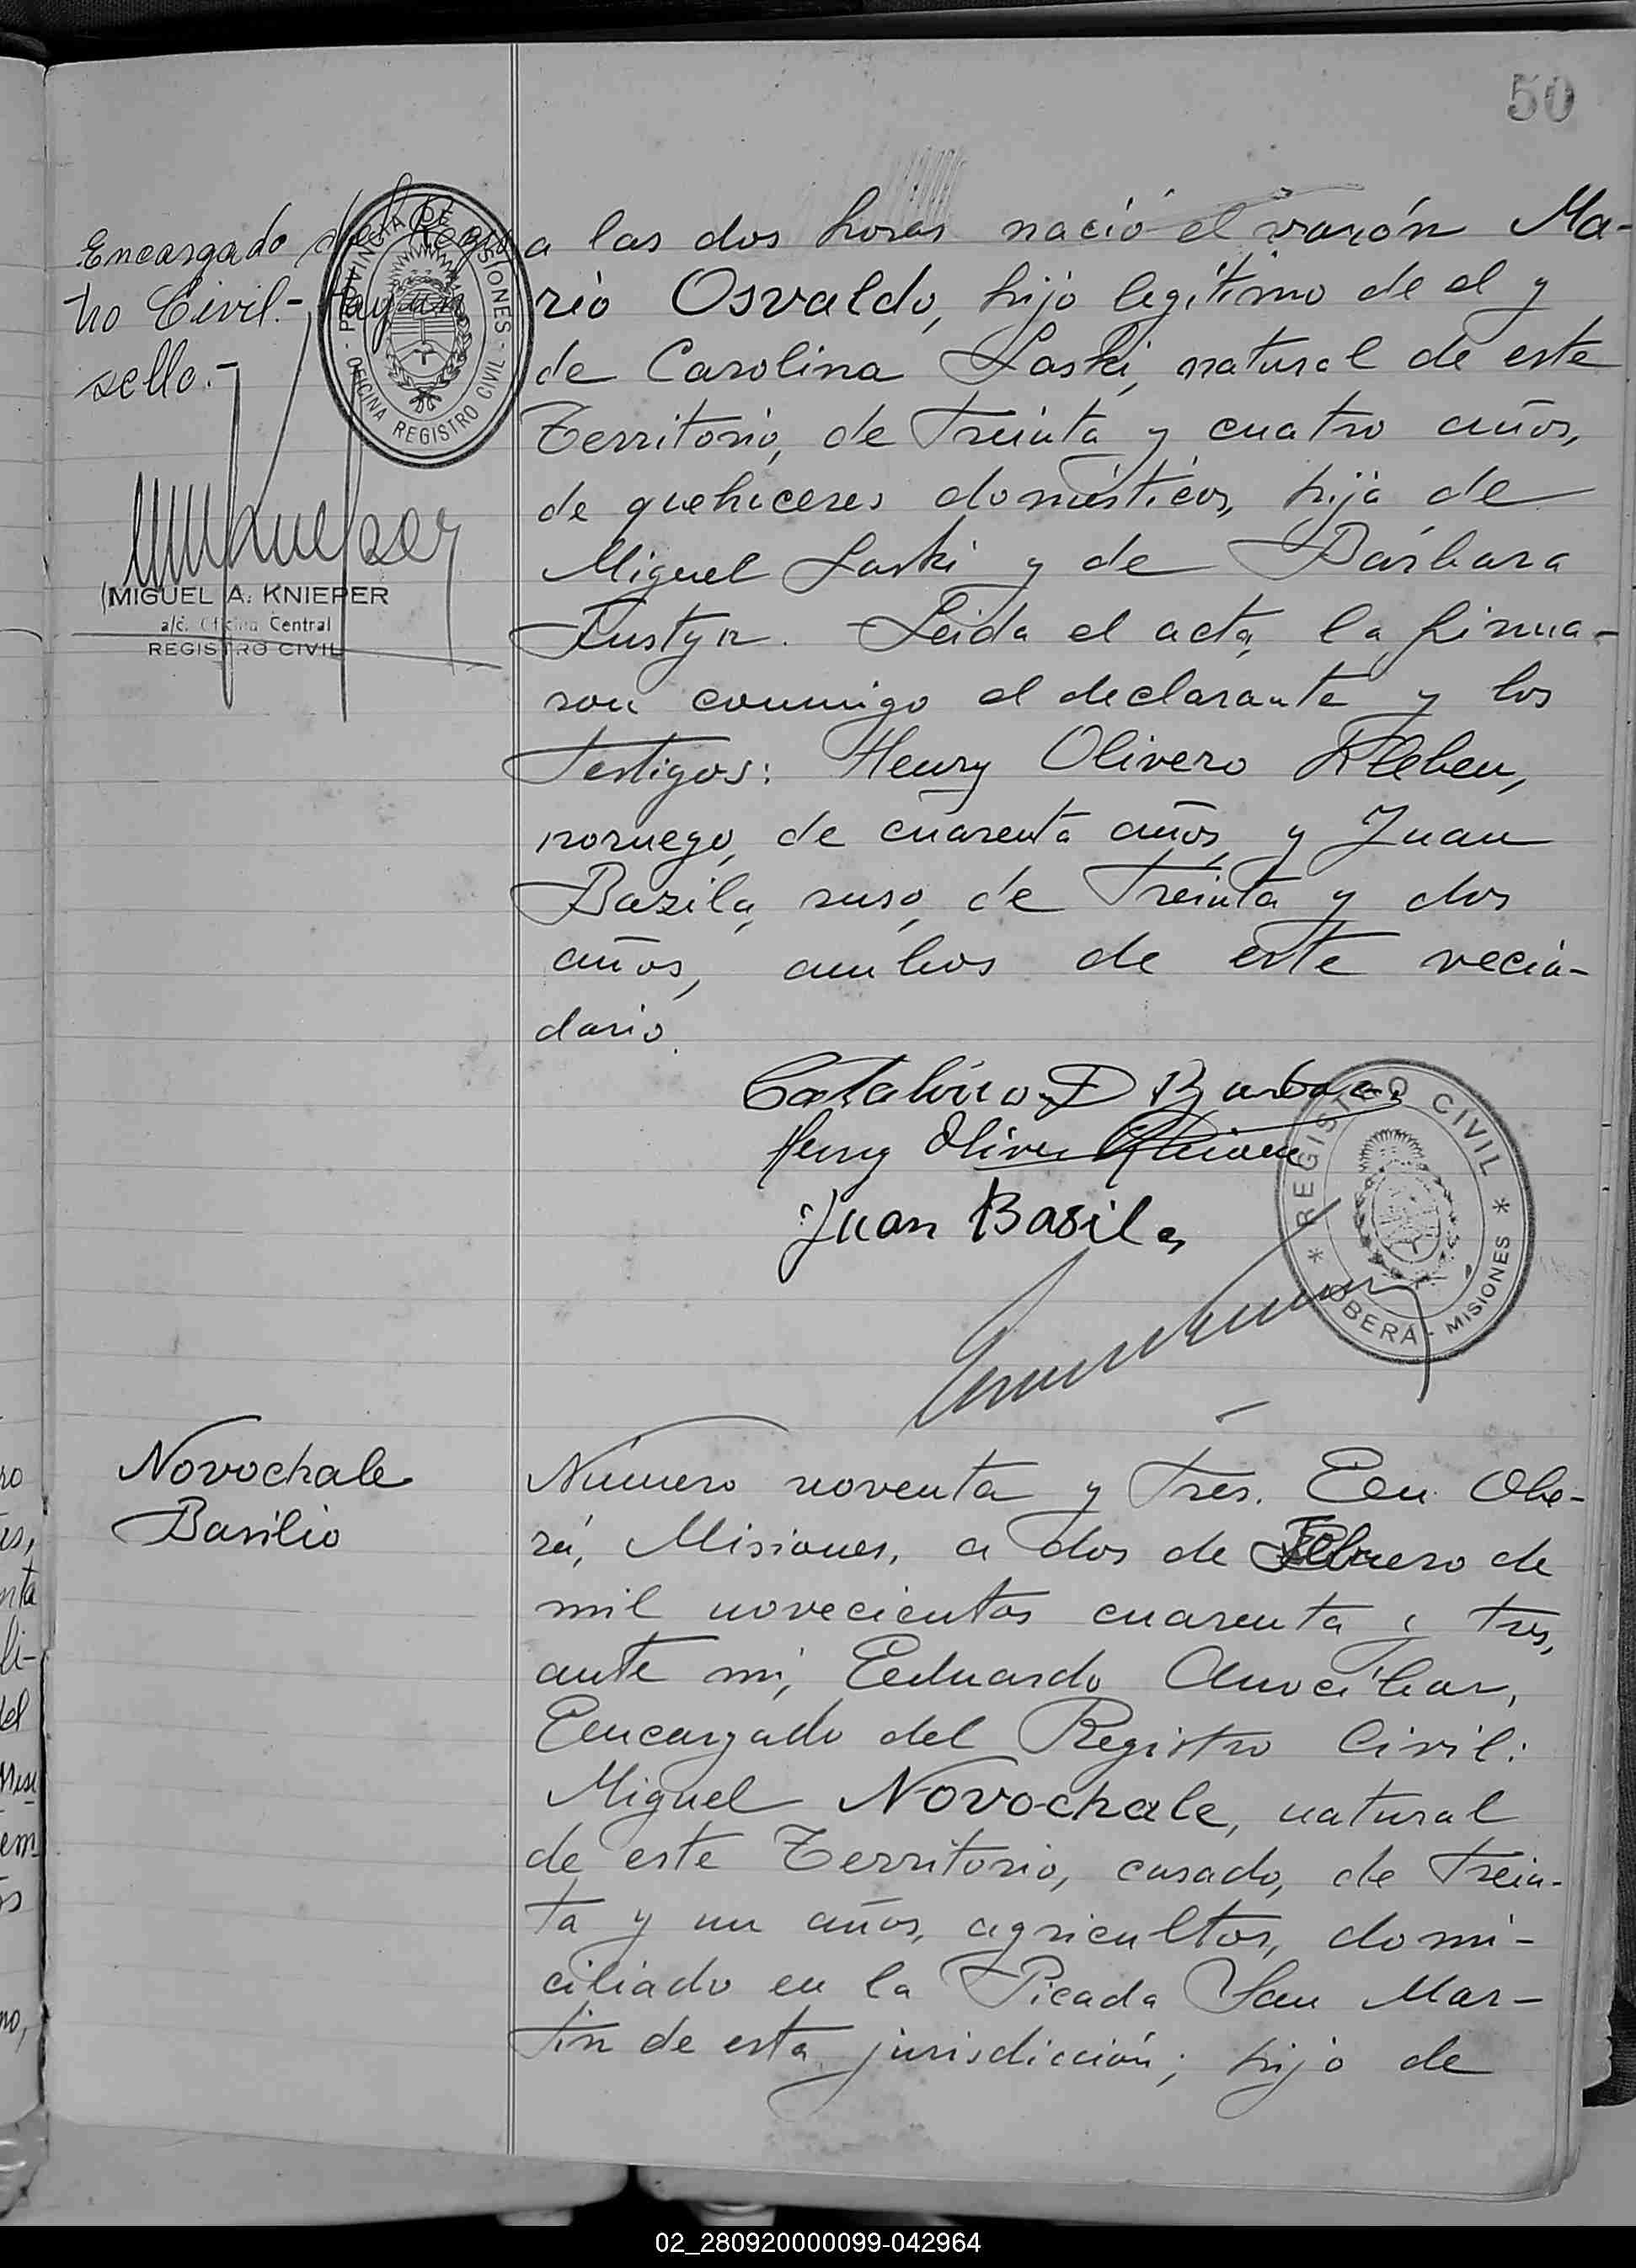 50
Encargado del Regis
tro Civil.- Hay un
sello.-
PROVINCIA DE MISIONES - OFICINA REGISTRO CIVIL -
MIGUEL A. KNIEPER
a/c. Oficina Central
REGISTRO CIVIL
a las dos horas nació el varón Ma-
rio Osvaldo, hijo legítimo de el y
de Carolina Laski, natural de este
Territorio, de treinta y cuatro años,
de quehaceres domésticos, hija de
Miguel Laski y de Bárbara
Fustyn. Leida el acta, la firma-
ron conmigo el declarante y los
testigos: Henry Olivero Kleben,
noruego, de cuarenta años, y Juan
Basila, ruso, de treinta y dos
años, ambos de este vecin-
dario.
Henry
Juan Basila
REGISTRO CIVIL * OBERÁ - MISIONES *
Novochale
Basilio
Número noventa y tres. En Obe-
rá, Misiones, a dos de Febrero de
mil novecientos cuarenta y tres,
ante mi, Eduardo Amocibar,
Encargado del Registro Civil:
Miguel Novochale, natural
de este Territorio, casado, de trein-
ta y un años, agricultor, domi-
ciliado en la Picada San Mar-
tin de esta jurisdicción; hijo de
ro
es,
nta
li-
del
em
no,
02_280920000099-042964